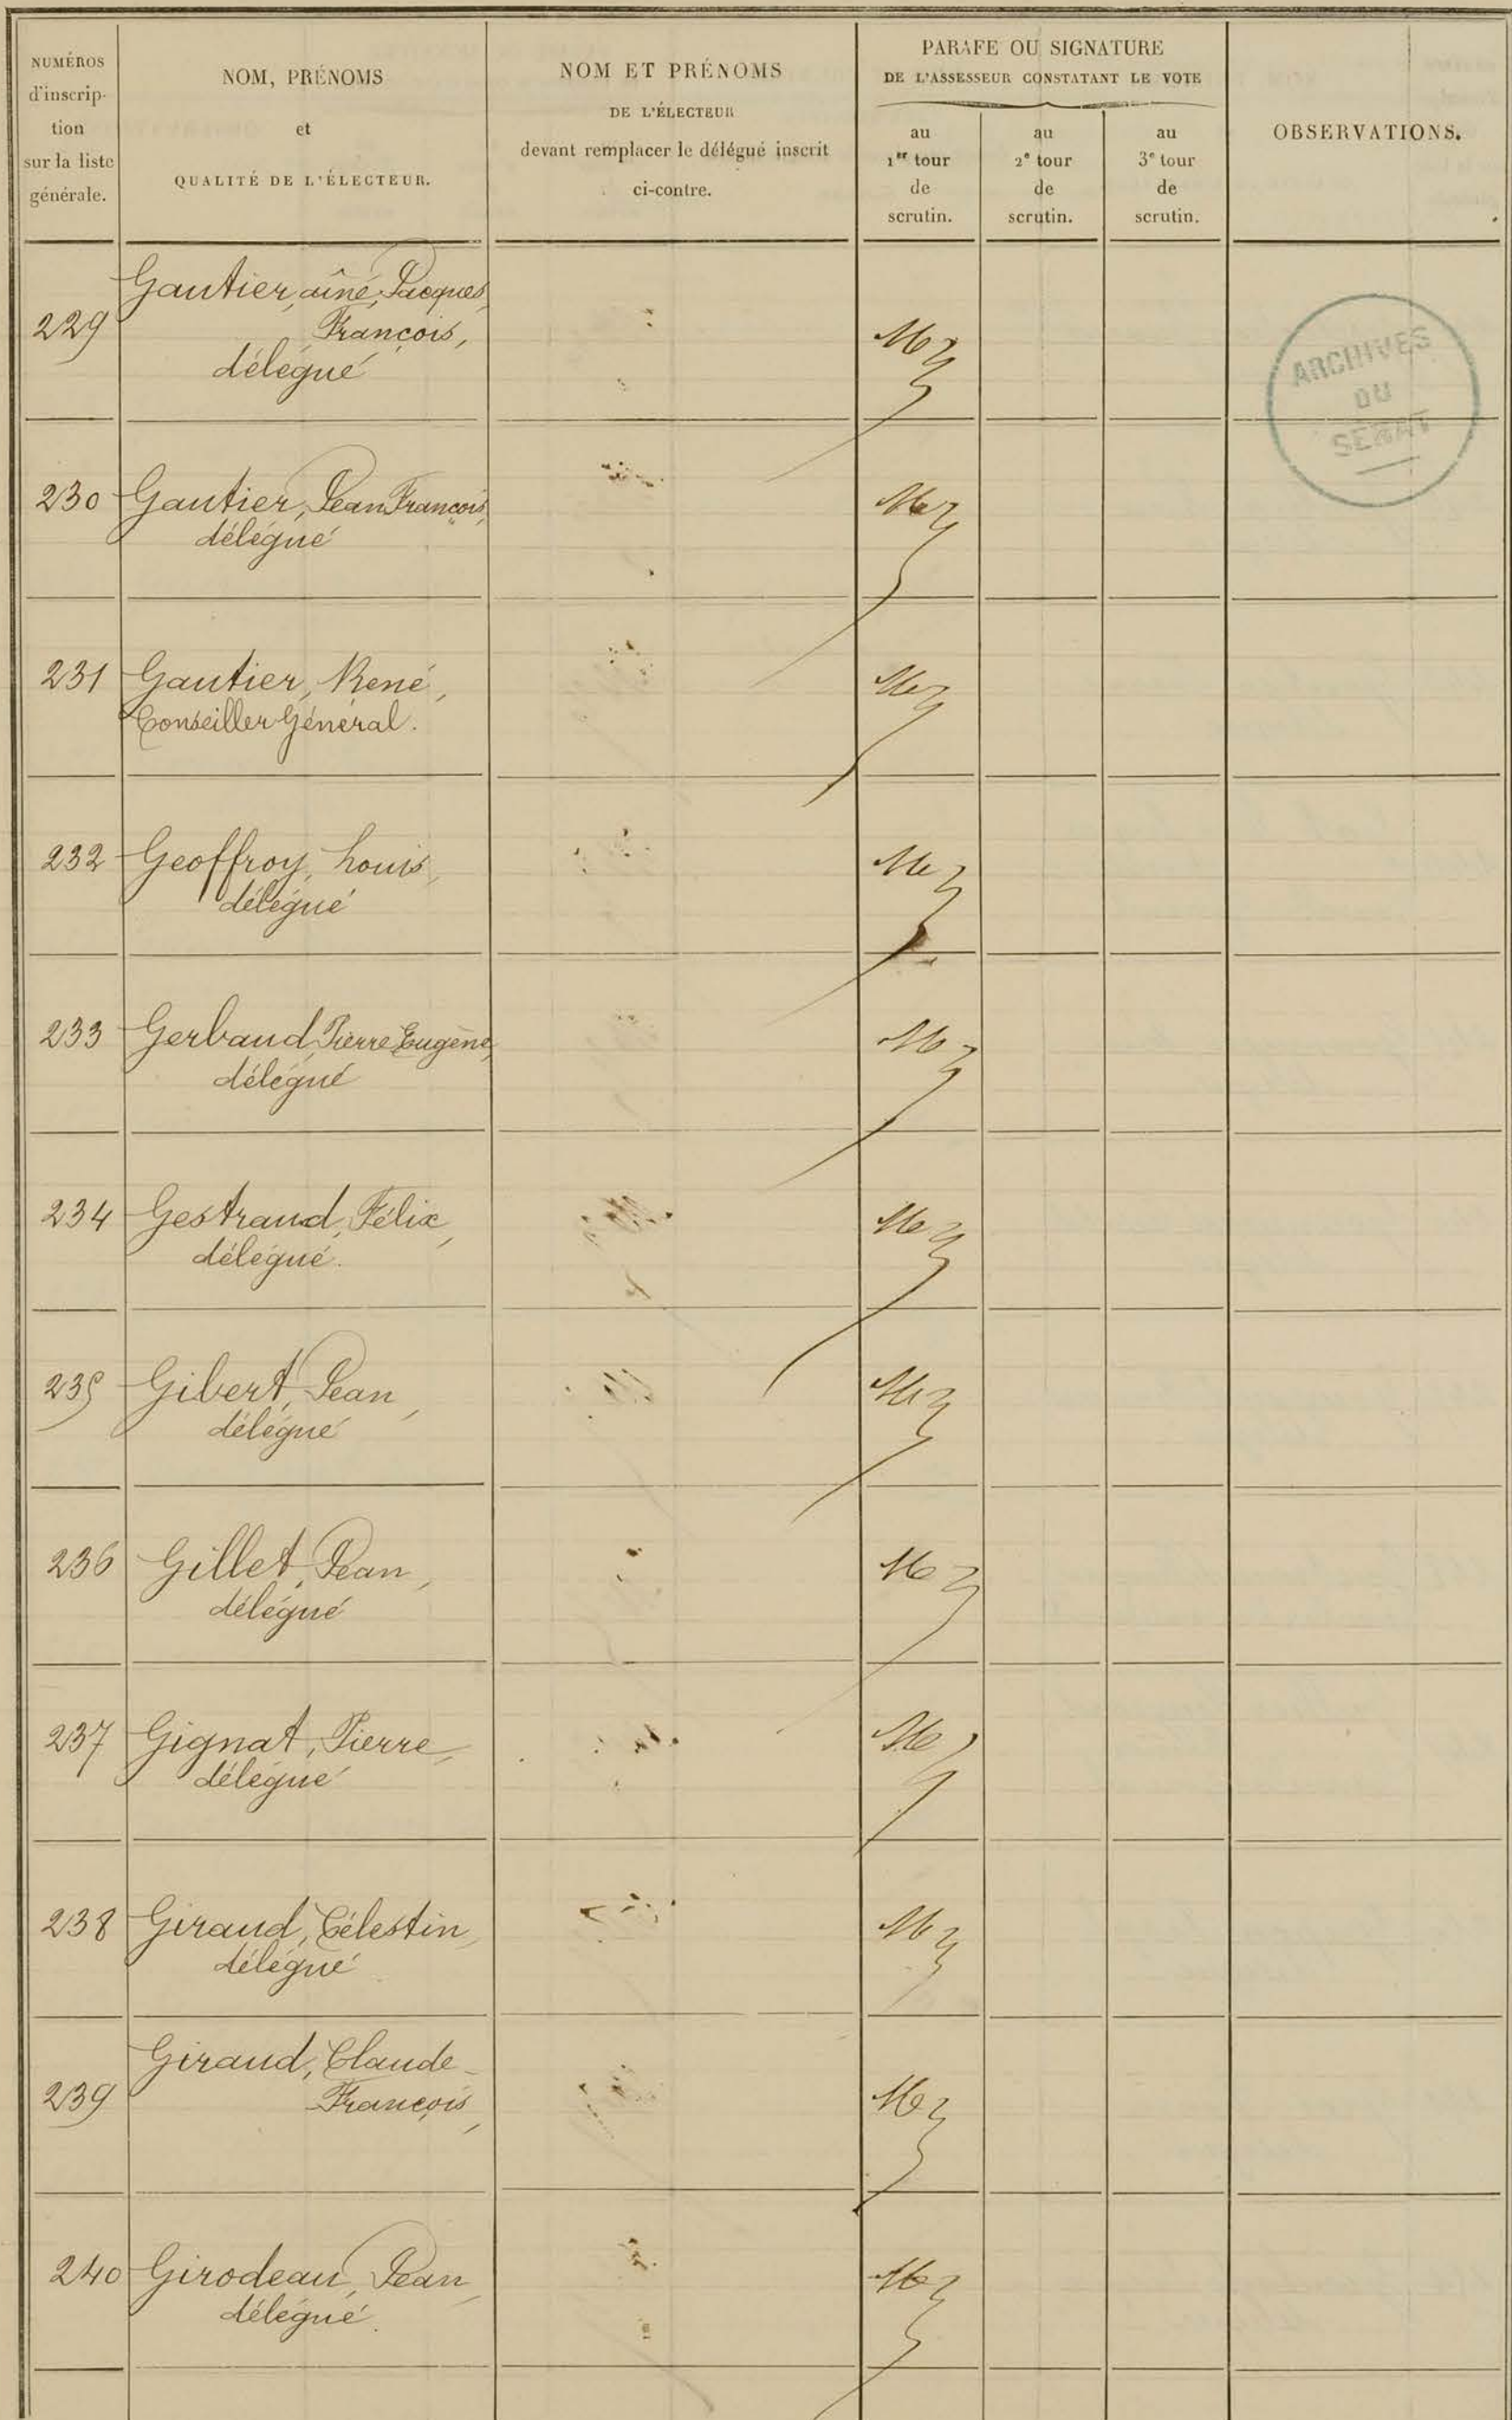 NUMÉROS
d'inscrip-
tion
sur la liste
générale.
NOM, PRÉNOMS
et
QUALITÉ DE L'ÉLECTEUR.
NOM ET PRÉNOMS
DE L'ÉLECTEUR
devant remplacer le délégué inscrit
ci-contre.
PARAFE OU SIGNATURE
DE L'ASSESSEUR CONSTATANT LE VOTE
au
1er tour
de
scrutin.
au
2e tour
de
scrutin.
au
3e tour
de
scrutin.
OBSERVATIONS.
229
Gautier, aîné, Jacques
François,
délégué
ARCHIVES
DU
SENAT
230 Gautier, Jean François,
délégué
231 Gautier, René,
Conseiller Général.
232 Geoffroy, Louis,
délégué
233 Gerbaud, Pierre Eugène,
délégué
234 Gestraud, Félix,
délégué.
235 Gibert, Jean,
délégué
236 Gillet, Jean,
délégué
237 Gignat, Pierre,
délégué
238 Giraud, Célestin,
délégué
239
Giraud, Claude-
François,
240 Girodeau, Jean,
délégué.